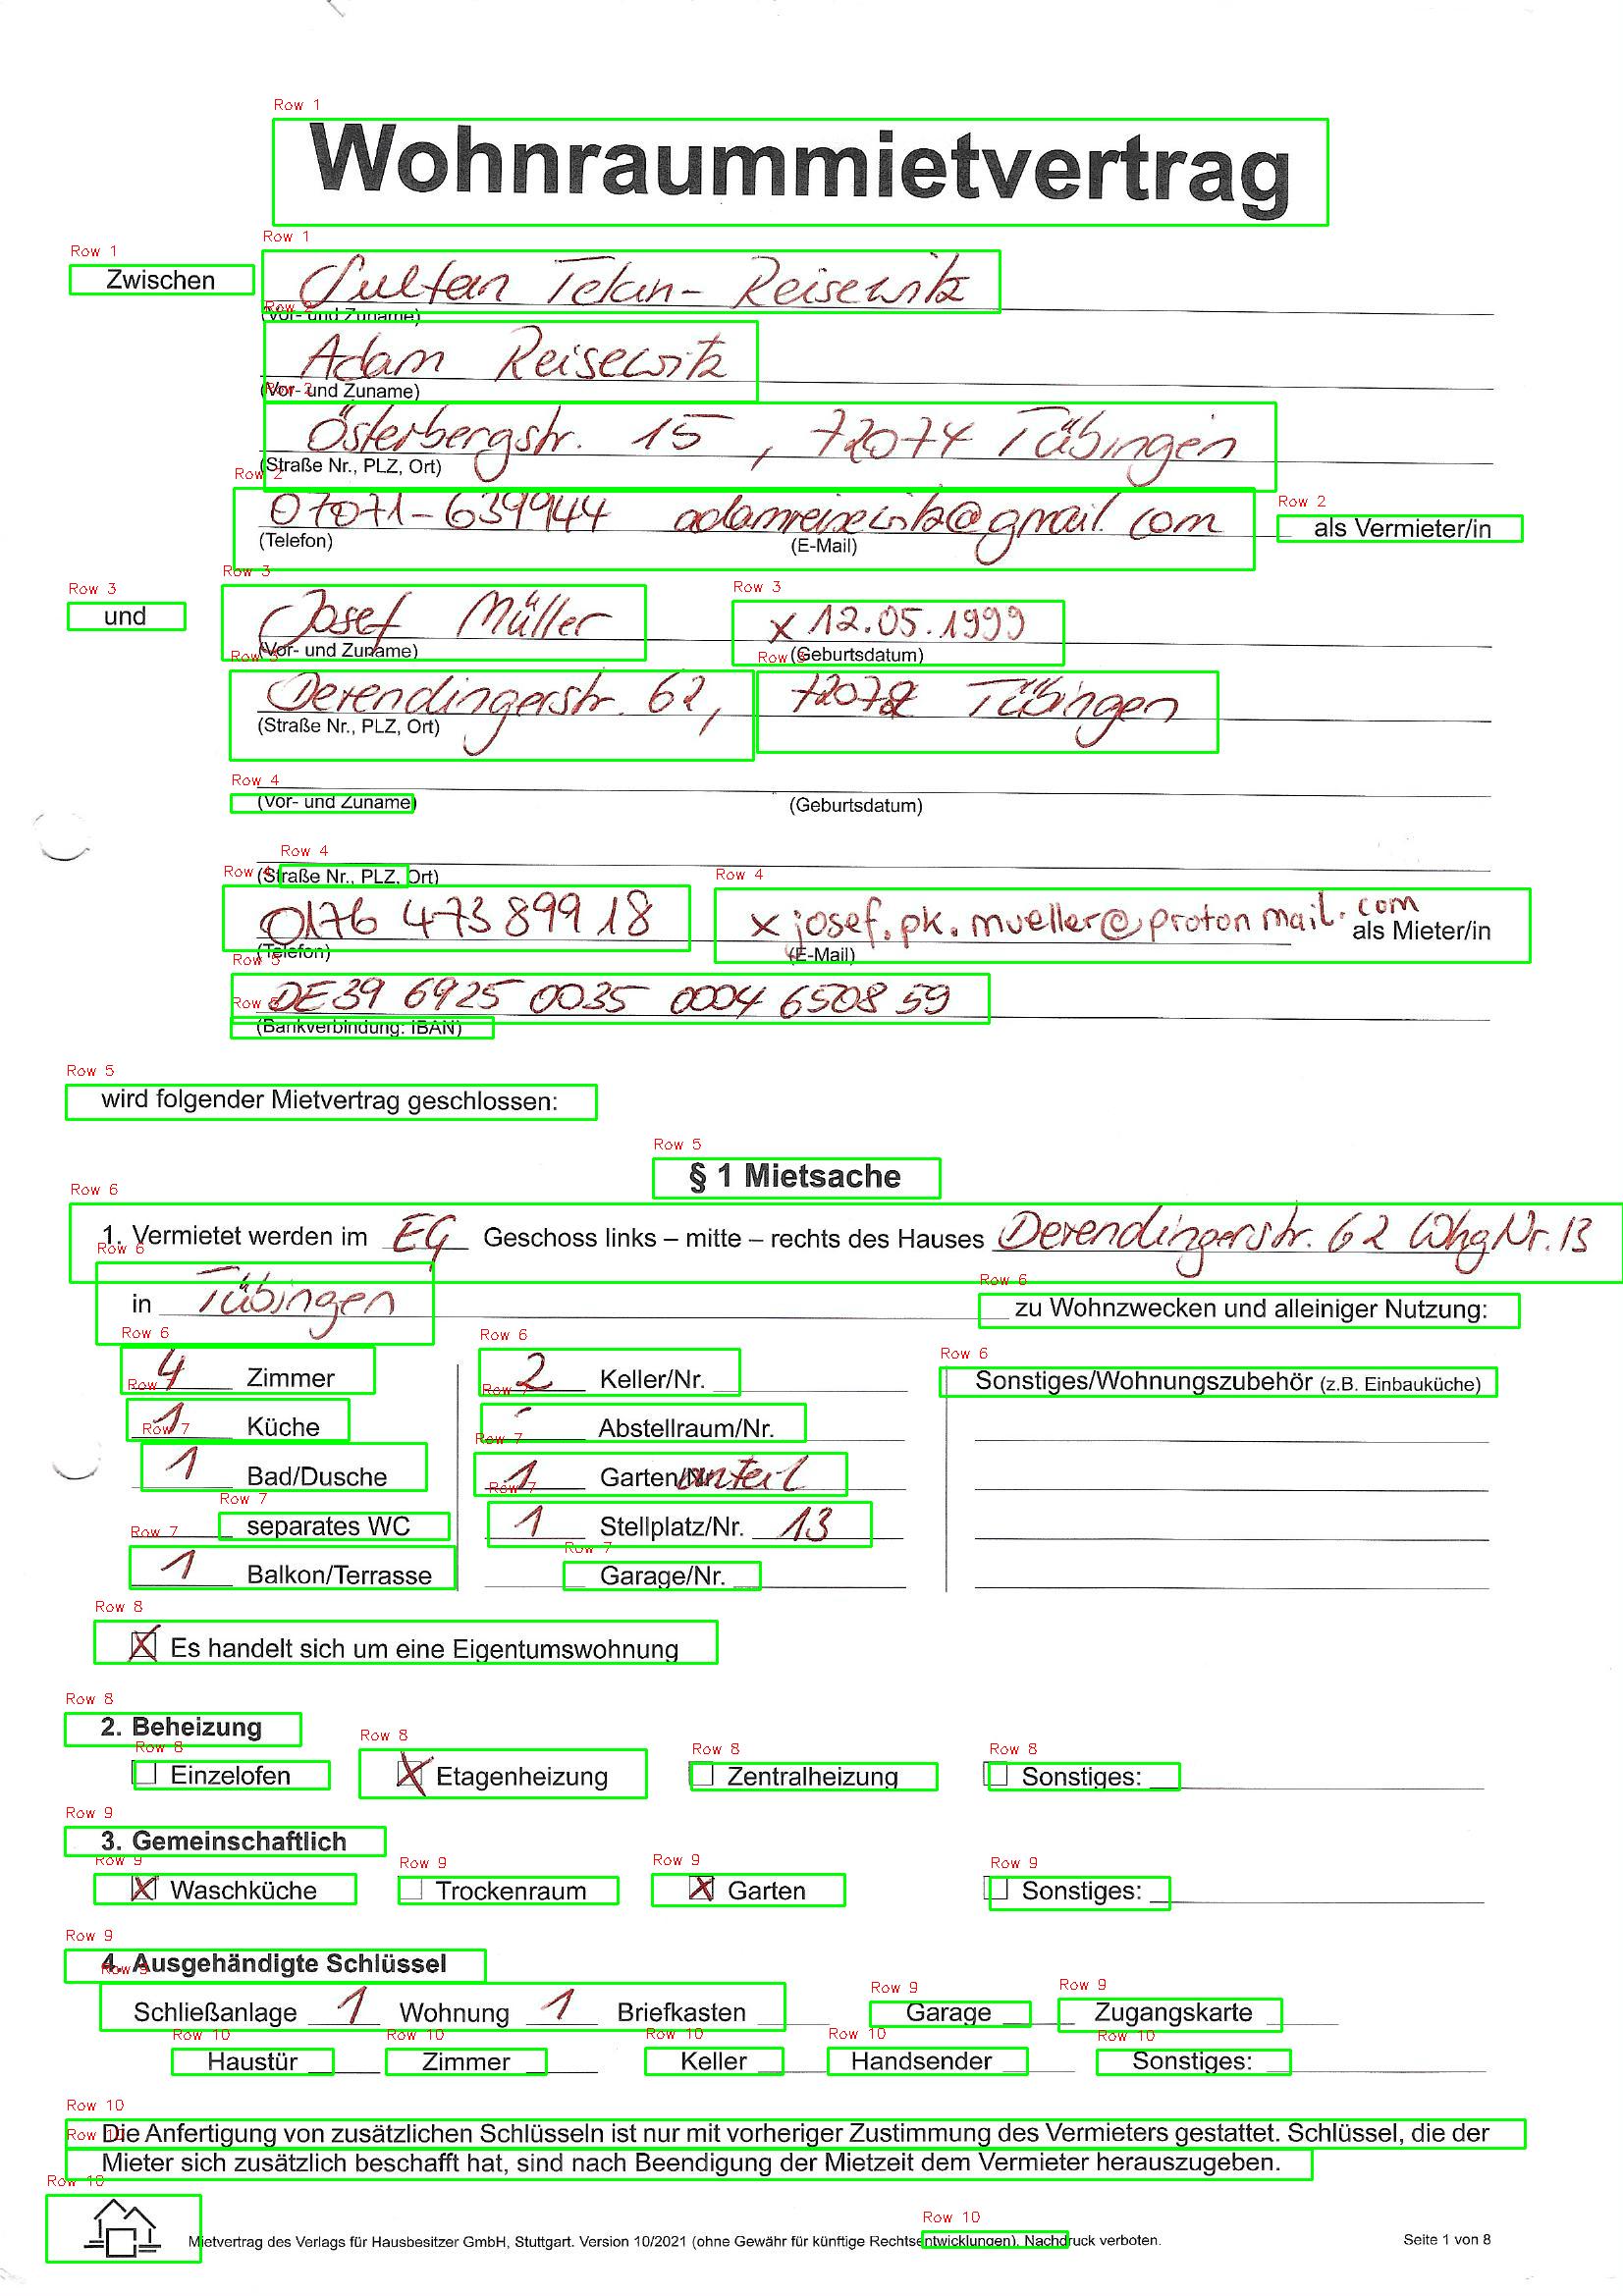 Wohnraummietvertrag
Zwischen Sultan Tekin-Reisewitz
(Vor- und Zuname)
Adam Reisewitz
(Vor- und Zuname)
Österbergstr. 15, 72074 Tübingen
(Straße Nr., PLZ, Ort)
07071-639944 adamreisewitz@gmail.com als Vermieter/in
(Telefon) (E-Mail)
und Josef Müller x 12.05.1999
(Vor- und Zuname) (Geburtsdatum)
Derendingerstr. 62, 72072 Tübingen
(Straße Nr., PLZ, Ort)
(Vor- und Zuname) (Geburtsdatum)
(Straße Nr., PLZ, Ort)
0176 473 899 18 x josef.pk.mueller@protonmail.com als Mieter/in
(Telefon) (E-Mail)
DE39 6925 0035 0004 6508 59
(Bankverbindung: IBAN)
wird folgender Mietvertrag geschlossen:
§ 1 Mietsache
1. Vermietet werden im EG Geschoss links – mitte – rechts des Hauses Derendingerstr. 62 Whg Nr. 13
in Tübingen zu Wohnzwecken und alleiniger Nutzung:
4 Zimmer 2 Keller/Nr. Sonstiges/Wohnungszubehör (z.B. Einbauküche)
1 Küche Abstellraum/Nr.
1 Bad/Dusche 1 Garten/Nr. anteil
separates WC 1 Stellplatz/Nr. 13
1 Balkon/Terrasse Garage/Nr.
Es handelt sich um eine Eigentumswohnung
2. Beheizung
Einzelofen Etagenheizung Zentralheizung Sonstiges:
3. Gemeinschaftlich
Waschküche Trockenraum Garten Sonstiges:
4. Ausgehändigte Schlüssel
Schließanlage 1 Wohnung 1 Briefkasten Garage Zugangskarte
Haustür Zimmer Keller Handsender Sonstiges:
Die Anfertigung von zusätzlichen Schlüsseln ist nur mit vorheriger Zustimmung des Vermieters gestattet. Schlüssel, die der
Mieter sich zusätzlich beschafft hat, sind nach Beendigung der Mietzeit dem Vermieter herauszugeben.
Mietvertrag des Verlags für Hausbesitzer GmbH, Stuttgart. Version 10/2021 (ohne Gewähr für künftige Rechtsentwicklungen). Nachdruck verboten. Seite 1 von 8